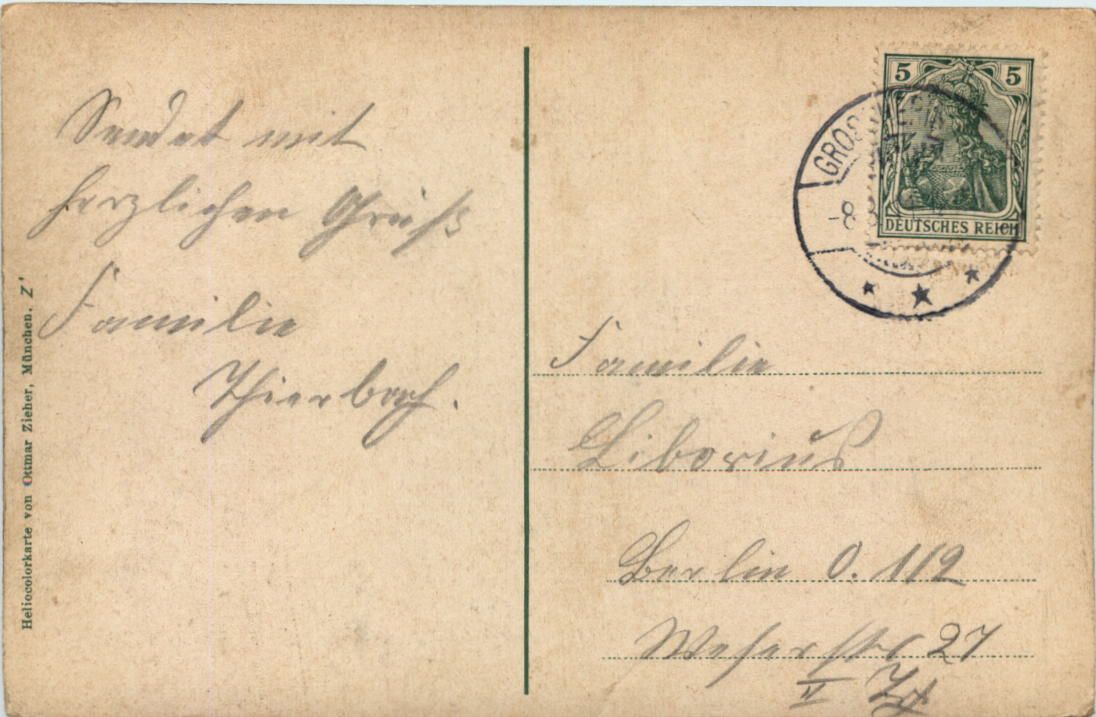 Sendet mit
herzlichen Gruß
Familie
Thierbach.
Heliocolorkarte von Ottmar Zieher, München. Z'
5 5
DEUTSCHES REICH
-8.
Familie
Liborius
Berlin O. 112
Weserstr 27
II